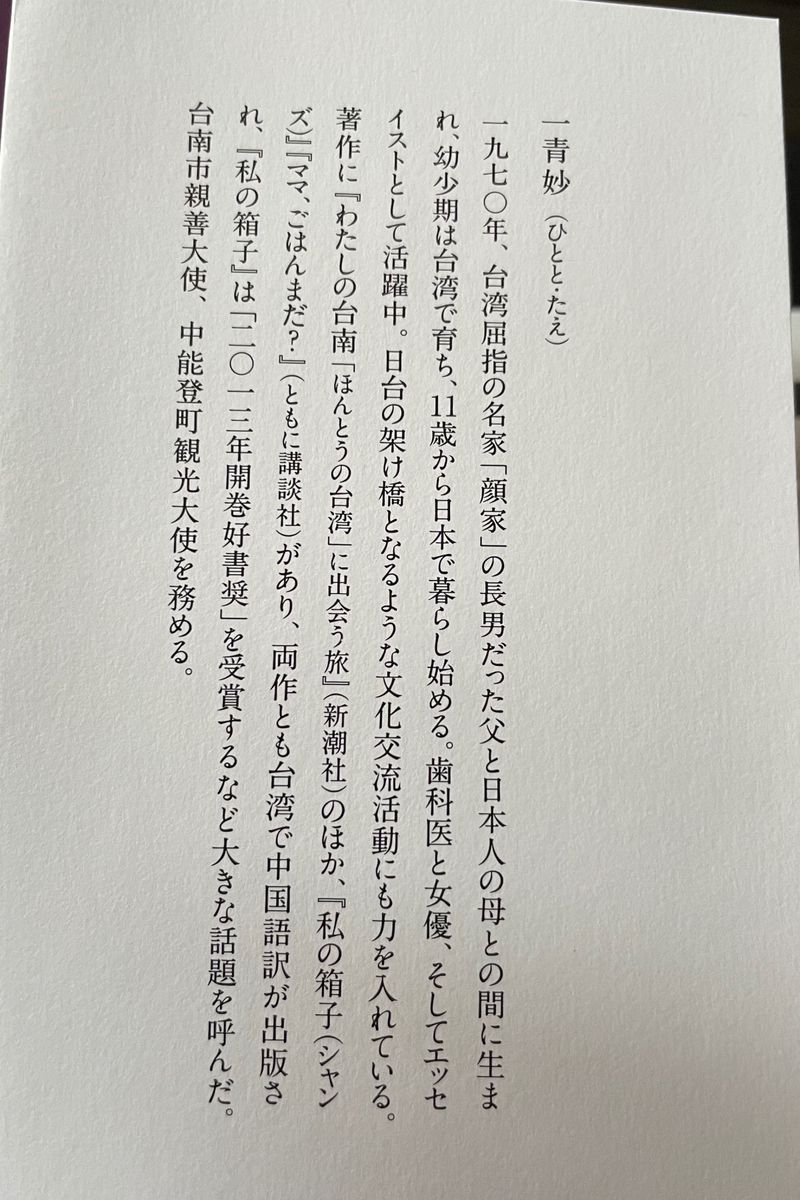 一青妙(ひとと・たえ)
一九七〇年、台湾屈指の名家「顔家」の長男だった父と日本人の母との間に生ま
れ、幼少期は台湾で育ち、11歳から日本で暮らし始める。歯科医と女優、そしてエッセ
イストとして活躍中。日台の架け橋となるような文化交流活動にも力を入れている。
著作に『わたしの台南「ほんとうの台湾」に出会う旅』(新潮社)のほか、『私の箱子(シャン
ズ)』『ママ、ごはんまだ?』(ともに講談社)があり、両作とも台湾で中国語訳が出版さ
れ、『私の箱子』は「二〇一三年開巻好書奨」を受賞するなど大きな話題を呼んだ。
台南市親善大使、中能登町観光大使を務める。